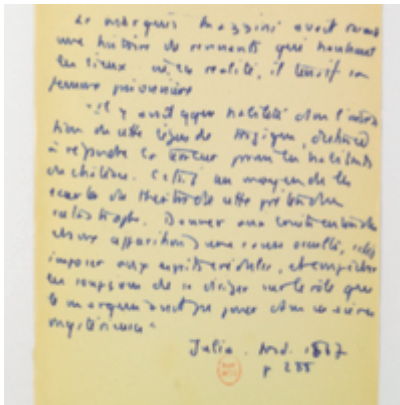 Le marquis Mazzini avait
une histoire de revenants qui hantaient
les lieux en réalité, il tenait sa
femme prisonnière
"Il y avait habileté dans l'inven
tion de cette légende
à répandre la terreur parmi les habitants
du château. C'était un moyen de les
écarter du théâtre de cette prétendue
catastrophe. Donner aux
et aux apparitions une cause occulte,
imposer aux esprits crédules, et empêcher
les soupçons de se diriger sur le rôle que
le marquis avait pu jouer dans ces scènes
mystérieuses"
Julia. 1867
p 288